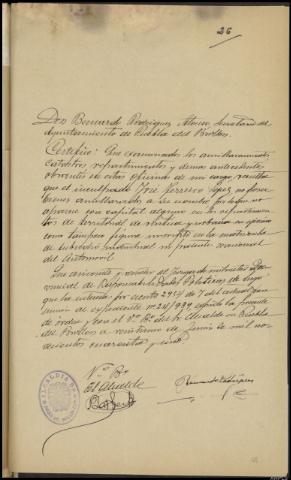 26
Don Bernardo Rodriguez Alonso, Secretario del
Ayuntamiento de Puebla del Brollon.
Certifico: Que examinados los amillaramientos,
catastros, repartimientos y demas antecedentes
obrantes en esta oficina de mi cargo, resulta
que el inculpado José Ferreiro López, no posee
bienes amillarados a su nombre, por lo que no
aparece con capital alguno en los repartimien-
tos de territorial de rústica y urbana, ni aparece
como tampoco figura inscrito en la matrícula
de subsidio industrial ni patente nacional
del Automovil
Y para que conste y remitir al Juzgado Instructor Pro-
vincial de Responsabilidades Politicas de Lugo
que lo interesa por escrito 2954 de 7 del actual dima-
nante al expediente nº 24/939 expido la presente
de orden y con el Vº Bº del Sr. Alcalde en Puebla
del Brollon a veintiuno de junio de mil no-
vecientos cuarenta y uno.
Vº Bº
El Alcalde
Bernardo Rodriguez
ALCALDIA